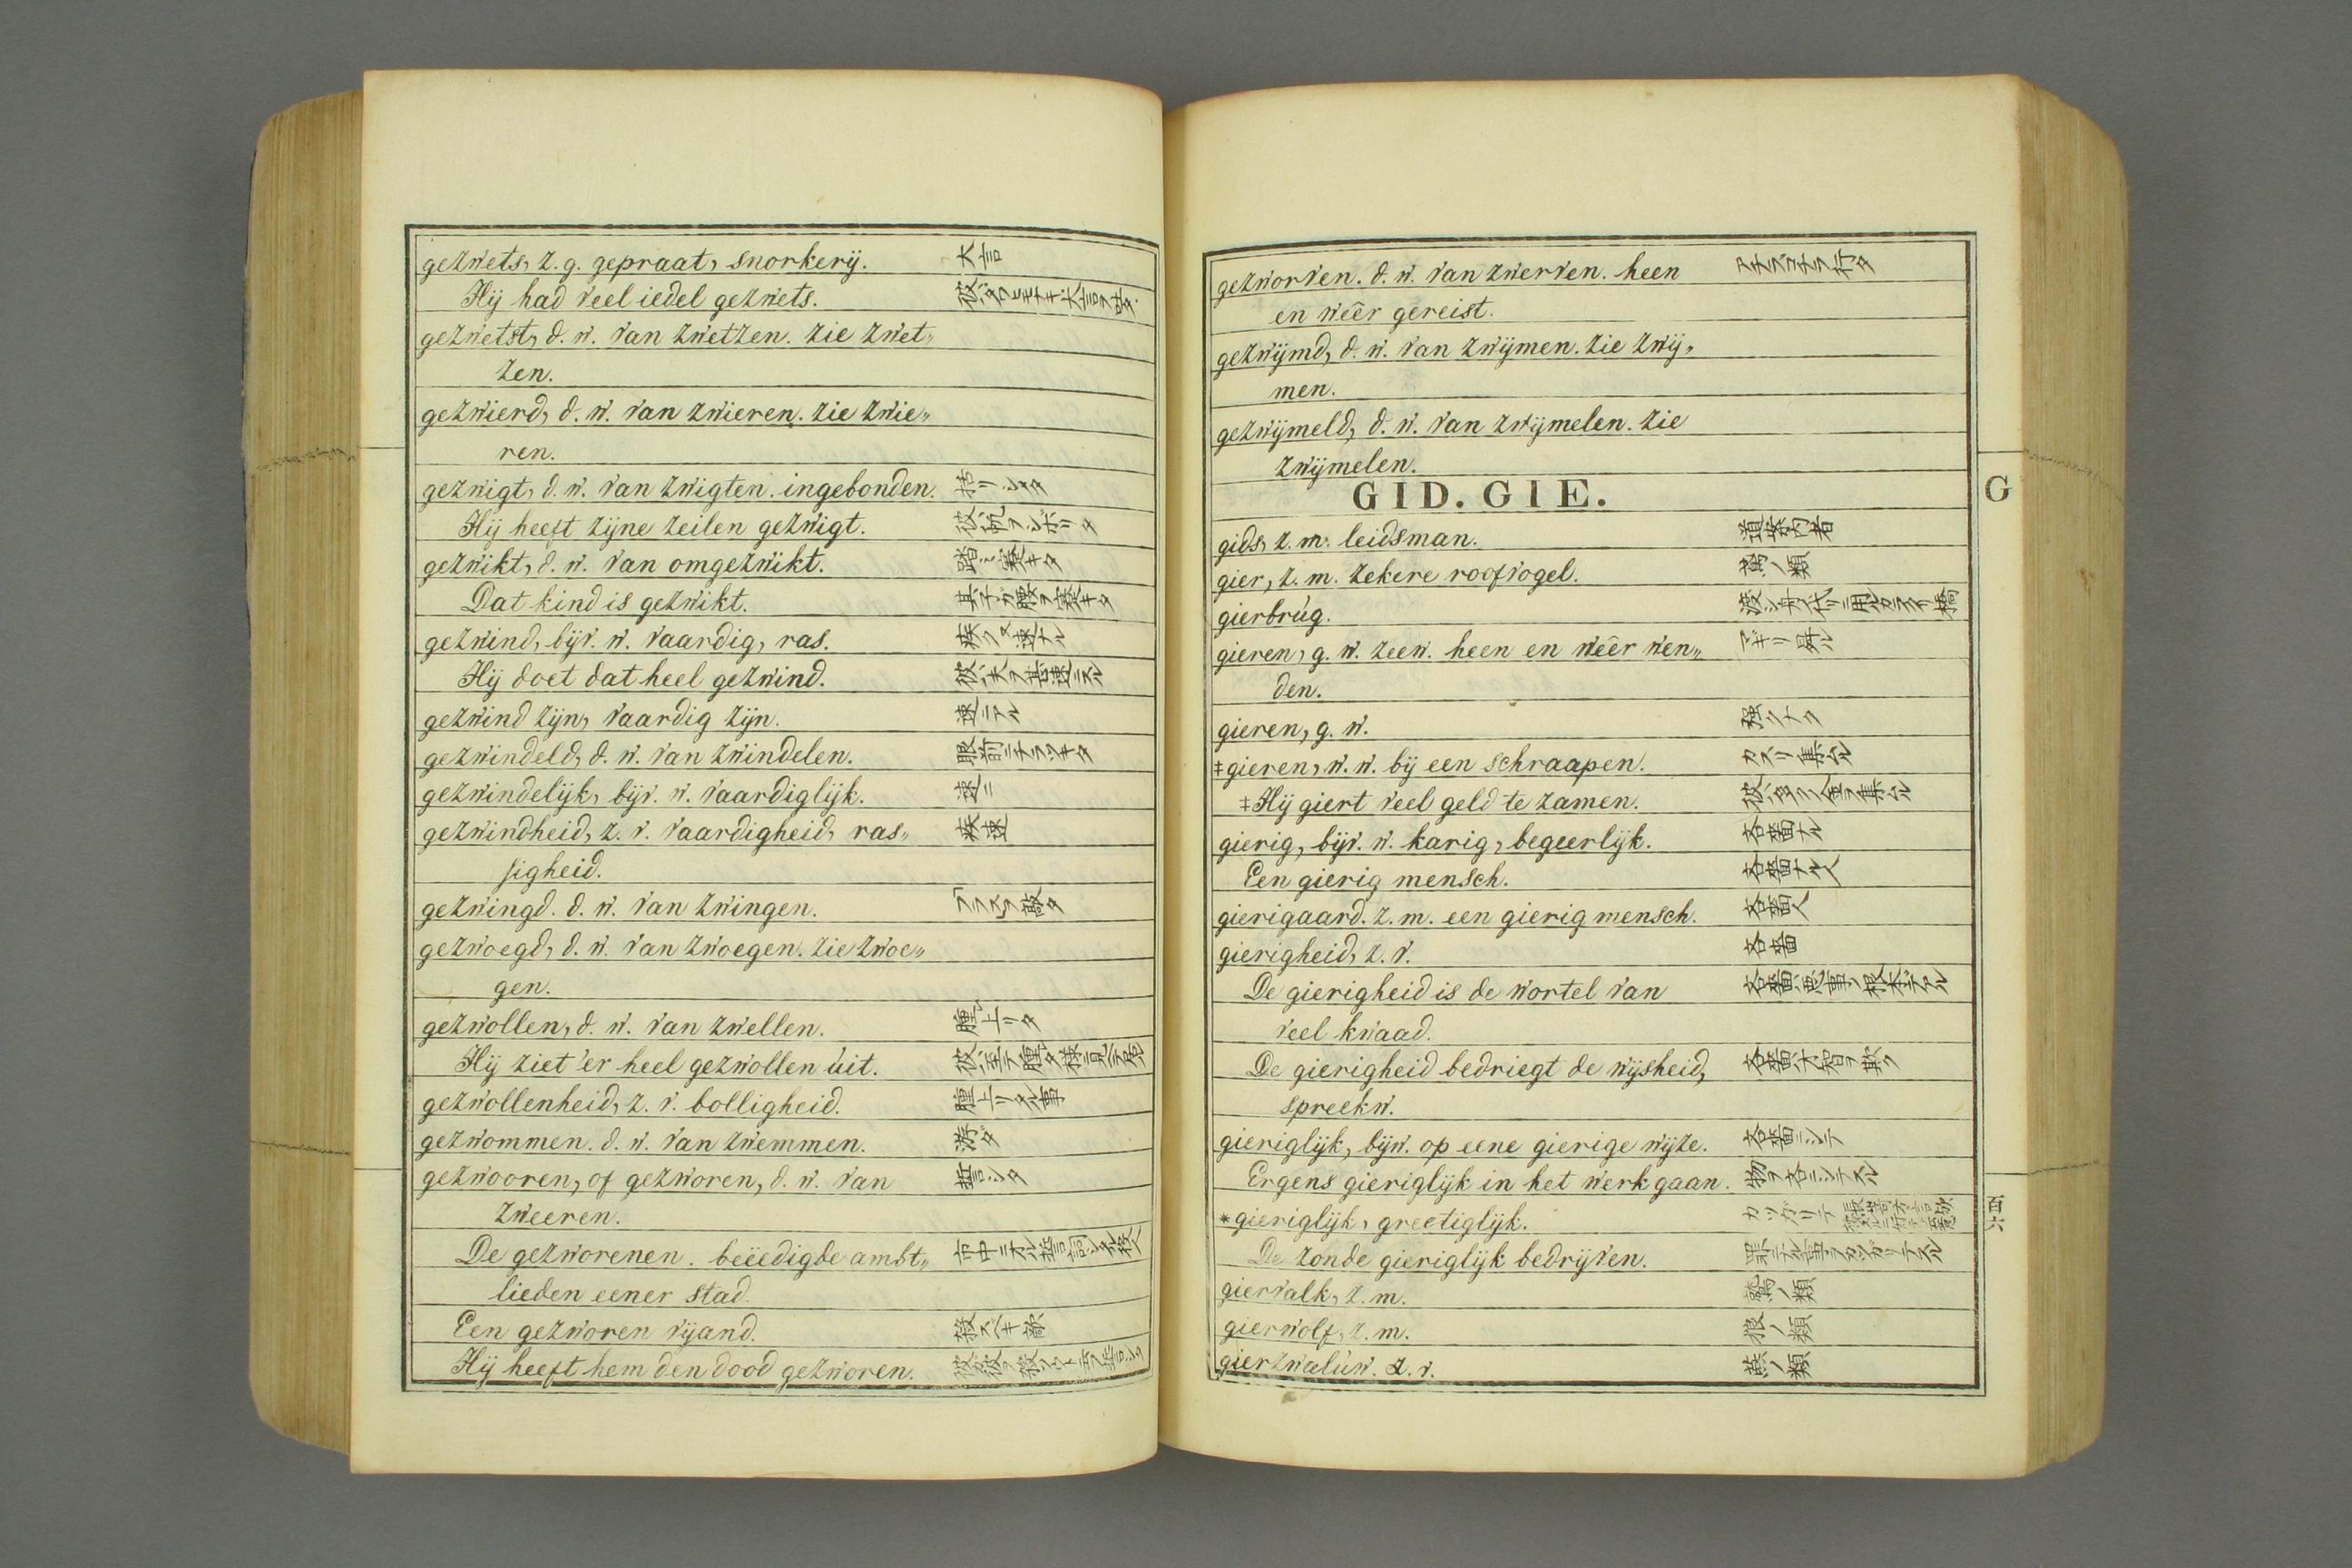 gezwets, z. g. gepraat, snorkerij. 大言
Hij had veel iedel gezwets.
gezwetst, d. w. van zwetzen. zie zwet„
zen.
gezwierd, d. w. van zwieren. zie zwie„
ren.
gezwigt, d. w. van zwigten. ingebonden. 括リシタ
Hij heeft zijne zeilen gezwigt. 彼ハ帆ヲシボリタ
gezwikt, d. w. van omgezwikt.
Dat kind is gezwikt.
gezwind, bijv. w. vaardig, ras.
Hij doet dat heel gezwind.
gezwind zijn, vaardig zijn. 速ニアル
gezwindeld, d. w. van zwindelen.
gezwindelijk, bijv. w. vaardiglijk. 速ニ
gezwindheid, z. v. vaardigheid, ras„ 疾速
sigheid.
gezwingd. d. w. van zwingen.
gezwoegd, d. w. van zwoegen. zie zwoe„
gen.
gezwollen, d. w. van zwellen. 腫レ上リタ
Hij ziet 'er heel gezwollen uit.
gezwollenheid, z. v. bolligheid. 腫上リタル事
gezwommen. d. w. van zwemmen. 游タ
gezwooren, of gezworen, d. w. van 誓シタ
zweeren.
De gezworenen. beëedigde ambt„
lieden eener stad.
Een gezworen vijand. 殺スベキ敵
Hij heeft hem den dood gezworen.
gezworven. d. w. van zwerven. heen アチラコチラ行タ
en weêr gereist.
gezwijmd, d. w. van zwijmen. zie zwij„
men.
gezwijmeld, d. w. van zwijmelen. zie
zwijmelen.
GID. GIE.
G
gids, z. m. leidsman. 道案内者
gier, z. m. zekere roofvogel. 鳶ノ類
gierbrug.
gieren, g. w. zeew. heen en weêr wen„
den.
gieren, g. w. 強クナク
‡gieren, w. w. bij een schraapen. カスリ集ムル
‡Hij giert veel geld te zamen. 彼ハ多クノ金ヲ集ムル
gierig, bijv. w. karig, begeerlijk. 吝嗇ナル
Een gierig mensch. 吝嗇ナル人
gierigaard. z. m. een gierig mensch. 吝嗇人
gierigheid, z. v. 吝嗇
De gierigheid is de wortel van 吝嗇ハ悪事ノ根本デアル
veel kwaad.
De gierigheid bedriegt de wijsheid, 吝嗇ハ才智ヲ欺ク
spreekw.
gieriglijk, bijw. op eene gierige wijze. 吝嗇ニシテ
Ergens gieriglijk in het werk gaan.
*gieriglijk, greetiglijk.
De zonde gieriglijk bedrijven.
giervalk, z. m.
gierwolf, z. m. 狼ノ類
gierzwaluw. z. v. 燕ノ類
百六